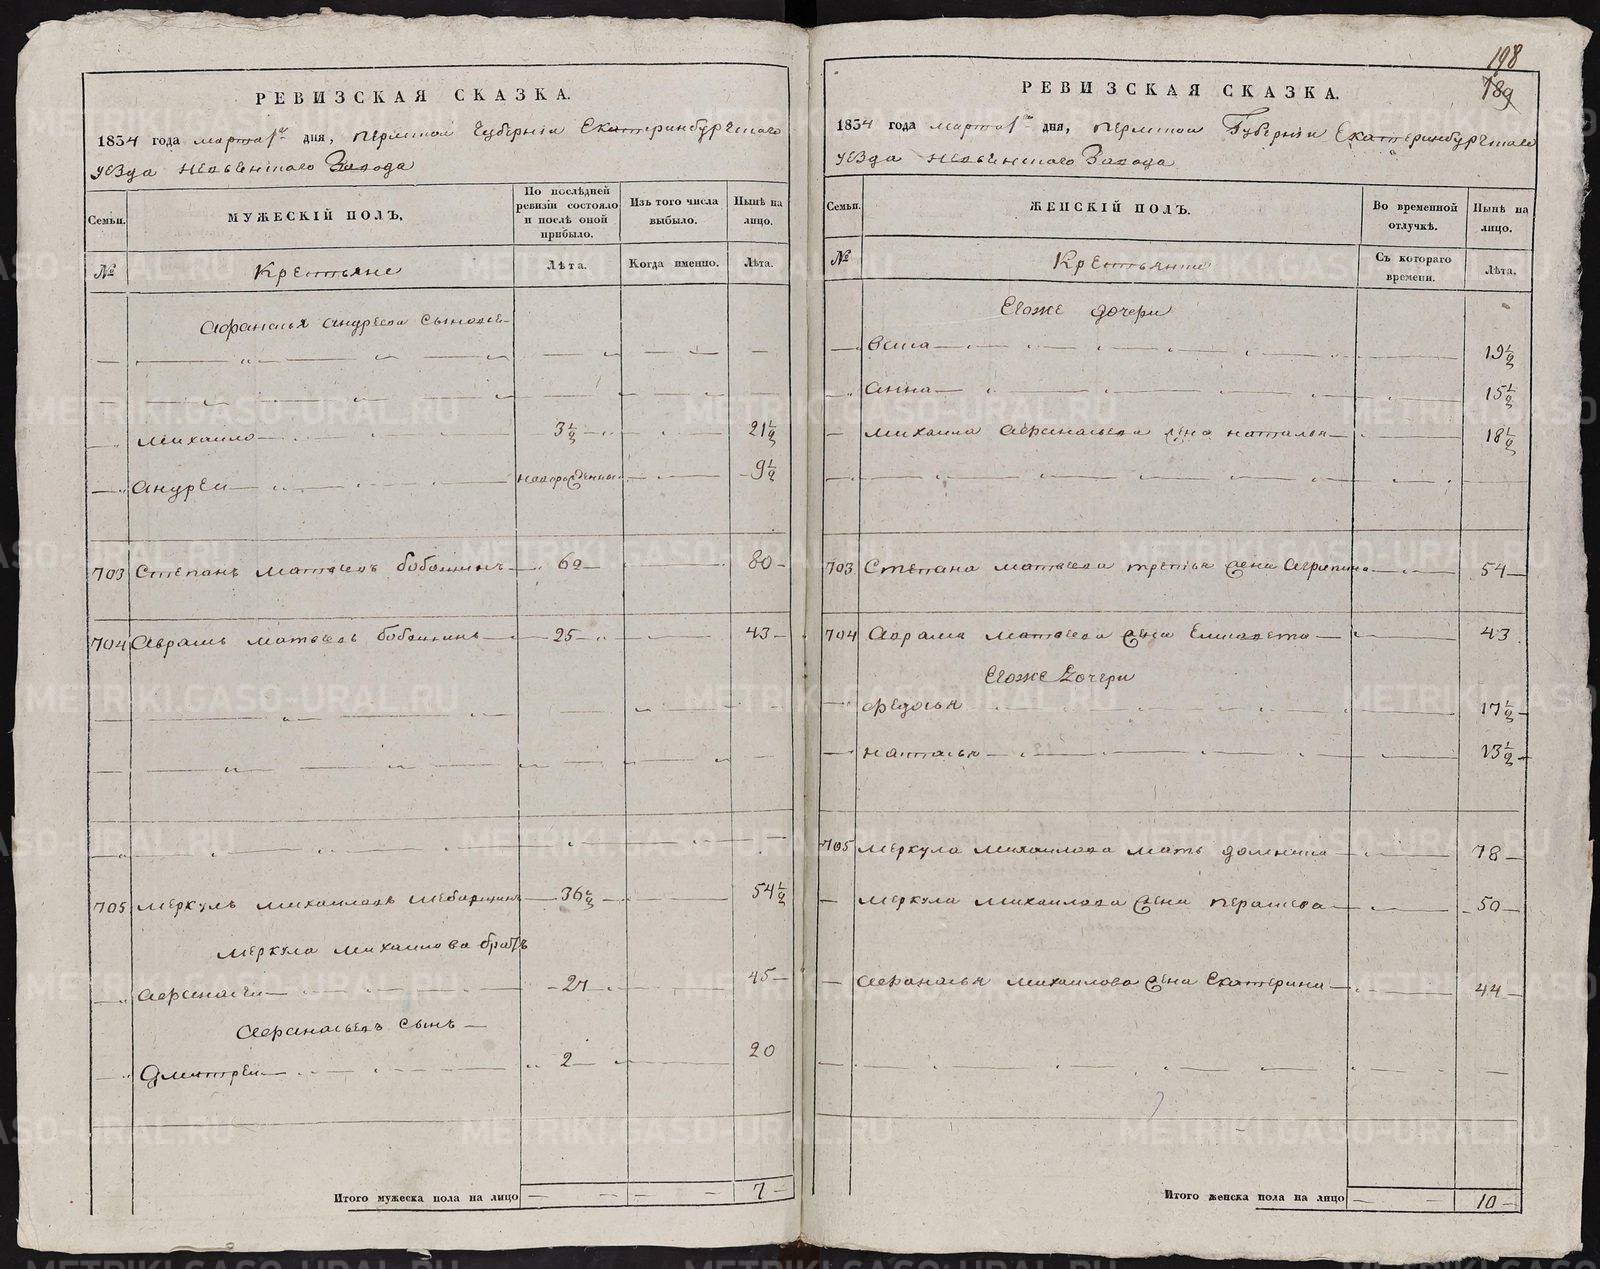 198
789
РЕВИЗСКАЯ СКАЗКА.
1834 года марта 1го дня, пермской губерніи Екатеринбургскаго
уѣзда невьянскаго Завода
Семьи.
МУЖЕСКІЙ ПОЛЪ.
По послѣдней ревизіи состояло и послѣ оной прибыло.
Изъ того числа выбыло.
Нынѣ на лицо.
№
Крестьяне
Лѣта.
Когда именно.
Лѣта.
Афанасья андреева сыновье
михаило 3½ 21½
андреи новорожденный 9½
703 Степанъ матвеевъ бабошинъ 62 80
704 Аврамъ матвеевъ бабошинъ 25 43
705 меркулъ михаиловъ шебарщинъ 36½ 54½
меркула михаилова братъ
Афанасеи 27 45
Афанасьевъ сынъ
Дмитреи 2 20
Итого мужеска пола на лицо 7
РЕВИЗСКАЯ СКАЗКА.
1834 года марта 1го дня, пермской Губерніи Екатеринбургскаго
уѣзда невьянскаго Завода
Семьи.
ЖЕНСКІЙ ПОЛЪ.
Во временной отлучкѣ.
Нынѣ на лицо.
№
Крестьянки
Съ котораго времени.
Лѣта.
Егоже дочери
19½
анна 15½
михаила Афанасьева жена наталья 18½
703 Степана матвеева третья жена Агрипина 54
704 Аврама матвеева жена Елисавета 43
Егоже дочери
Федосья 17½
наталья 13½
705 меркула михаилова мать домнина 78
меркула михаилова жена 50
Афанасья михаилова жена Екатерина 44
Итого женска пола на лицо 10
METRIKI.GASO-URAL.RU